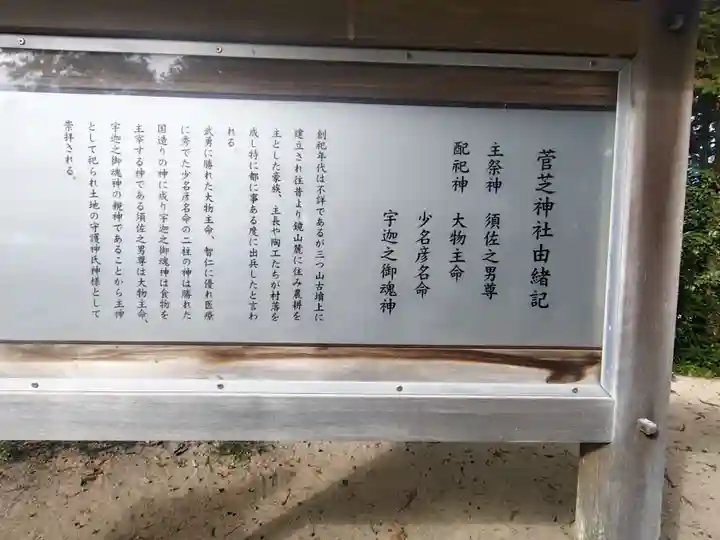 菅芝神社由緒記
主祭神 須佐之男尊
配祀神 大物主命
少名彦名命
宇迦之御魂神
創祀年代は不詳であるが三つ山古墳上に
建立され往昔より鏡山麓に住み農耕を
主とした豪族、主長や陶工たちが村落を
成し特に都に事ある度に出兵したと言わ
れる。
武勇に勝れた大物主命、智仁に優れ医療
に秀でた少名彦名命の二柱の神は勝れた
国造りの神に成り宇迦之御魂神は食物を
主宰する神である須佐之男尊は大物主命、
宇迦之御魂神の親神であることから主神
として祀られ土地の守護神氏神様として
崇拝される。